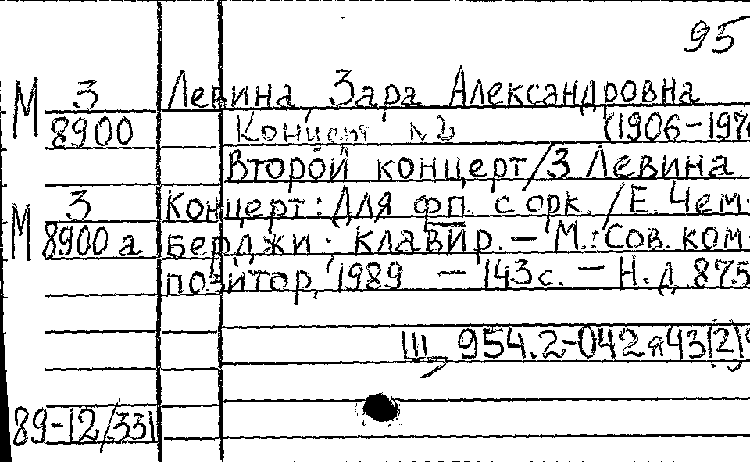 95
М 3 Левина, Зара Александровна
8900 Концерт №2 (1906-197
Второй концерт/З Левина
М 3 Концерт: Для фп. с орк. / Е. Чем-
8900 а берджи; клавир. — М.: Сов. ком-
позитор, 1989 — 143 с. — Н. д. 875
Ш 954.2-042я43(2)
89-12/331